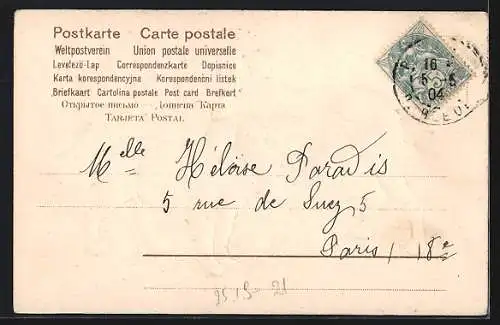 Postkarte Carte postale
Weltpostverein Union postale universelle
Levelező-Lap Correspondenzkarte Dopisnice
Karta korespondencyjna Korespondenční lístek
Briefkaart Cartolina postale Post card Brefkort
Открытое письмо — Дописна Карта
Tarjeta Postal
16
5
04
Melle Héloïse Paradis
5 rue de Suez 5
Paris, 18e